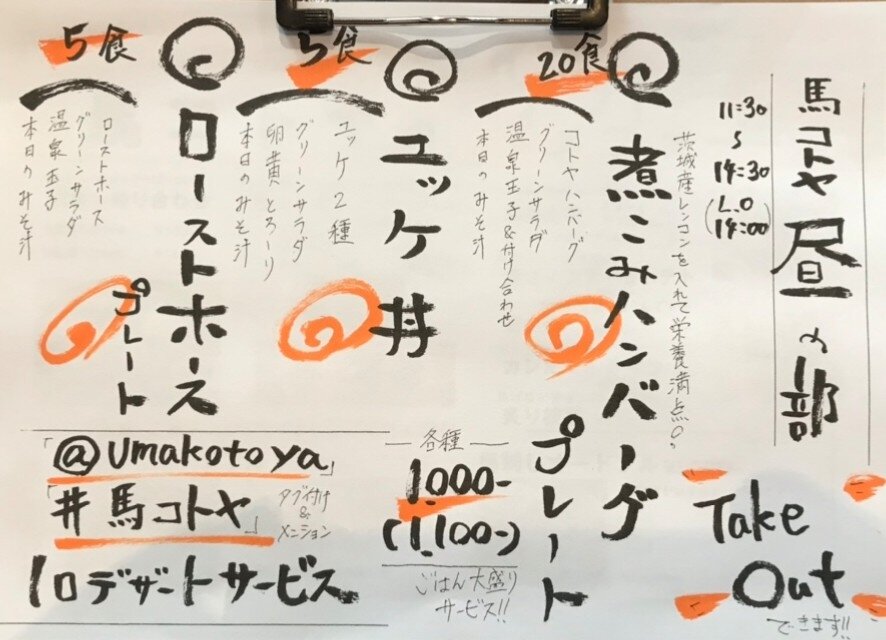 馬コトヤ昼の部
11:30
〜
14:30
(L.O
14:00)
茨城産レンコンを入れて栄養満点◎。
煮こみハンバーグ
プレート
20食
コトヤハンバーグ
グリーンサラダ
温泉玉子&付け合わせ
本日のみそ汁
ユッケ丼
5食
ユッケ2種
グリーンサラダ
卵黄とろーり
本日のみそ汁
ローストホース
プレート
5食
ローストホース
グリーンサラダ
温泉玉子
本日のみそ汁
各種
1.000-
(1.100-)
ごはん大盛り
サービス!!
「@umakotoya」
「#馬コトヤ」
タグ付け
&
メンション
1口デザートサービス
Take
Out
できます!!